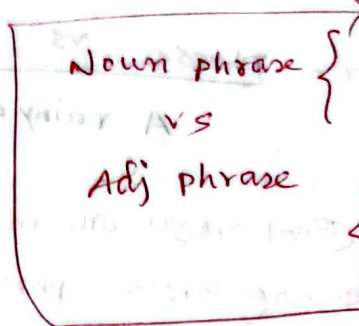 Noun phrase {
vs
Adj phrase